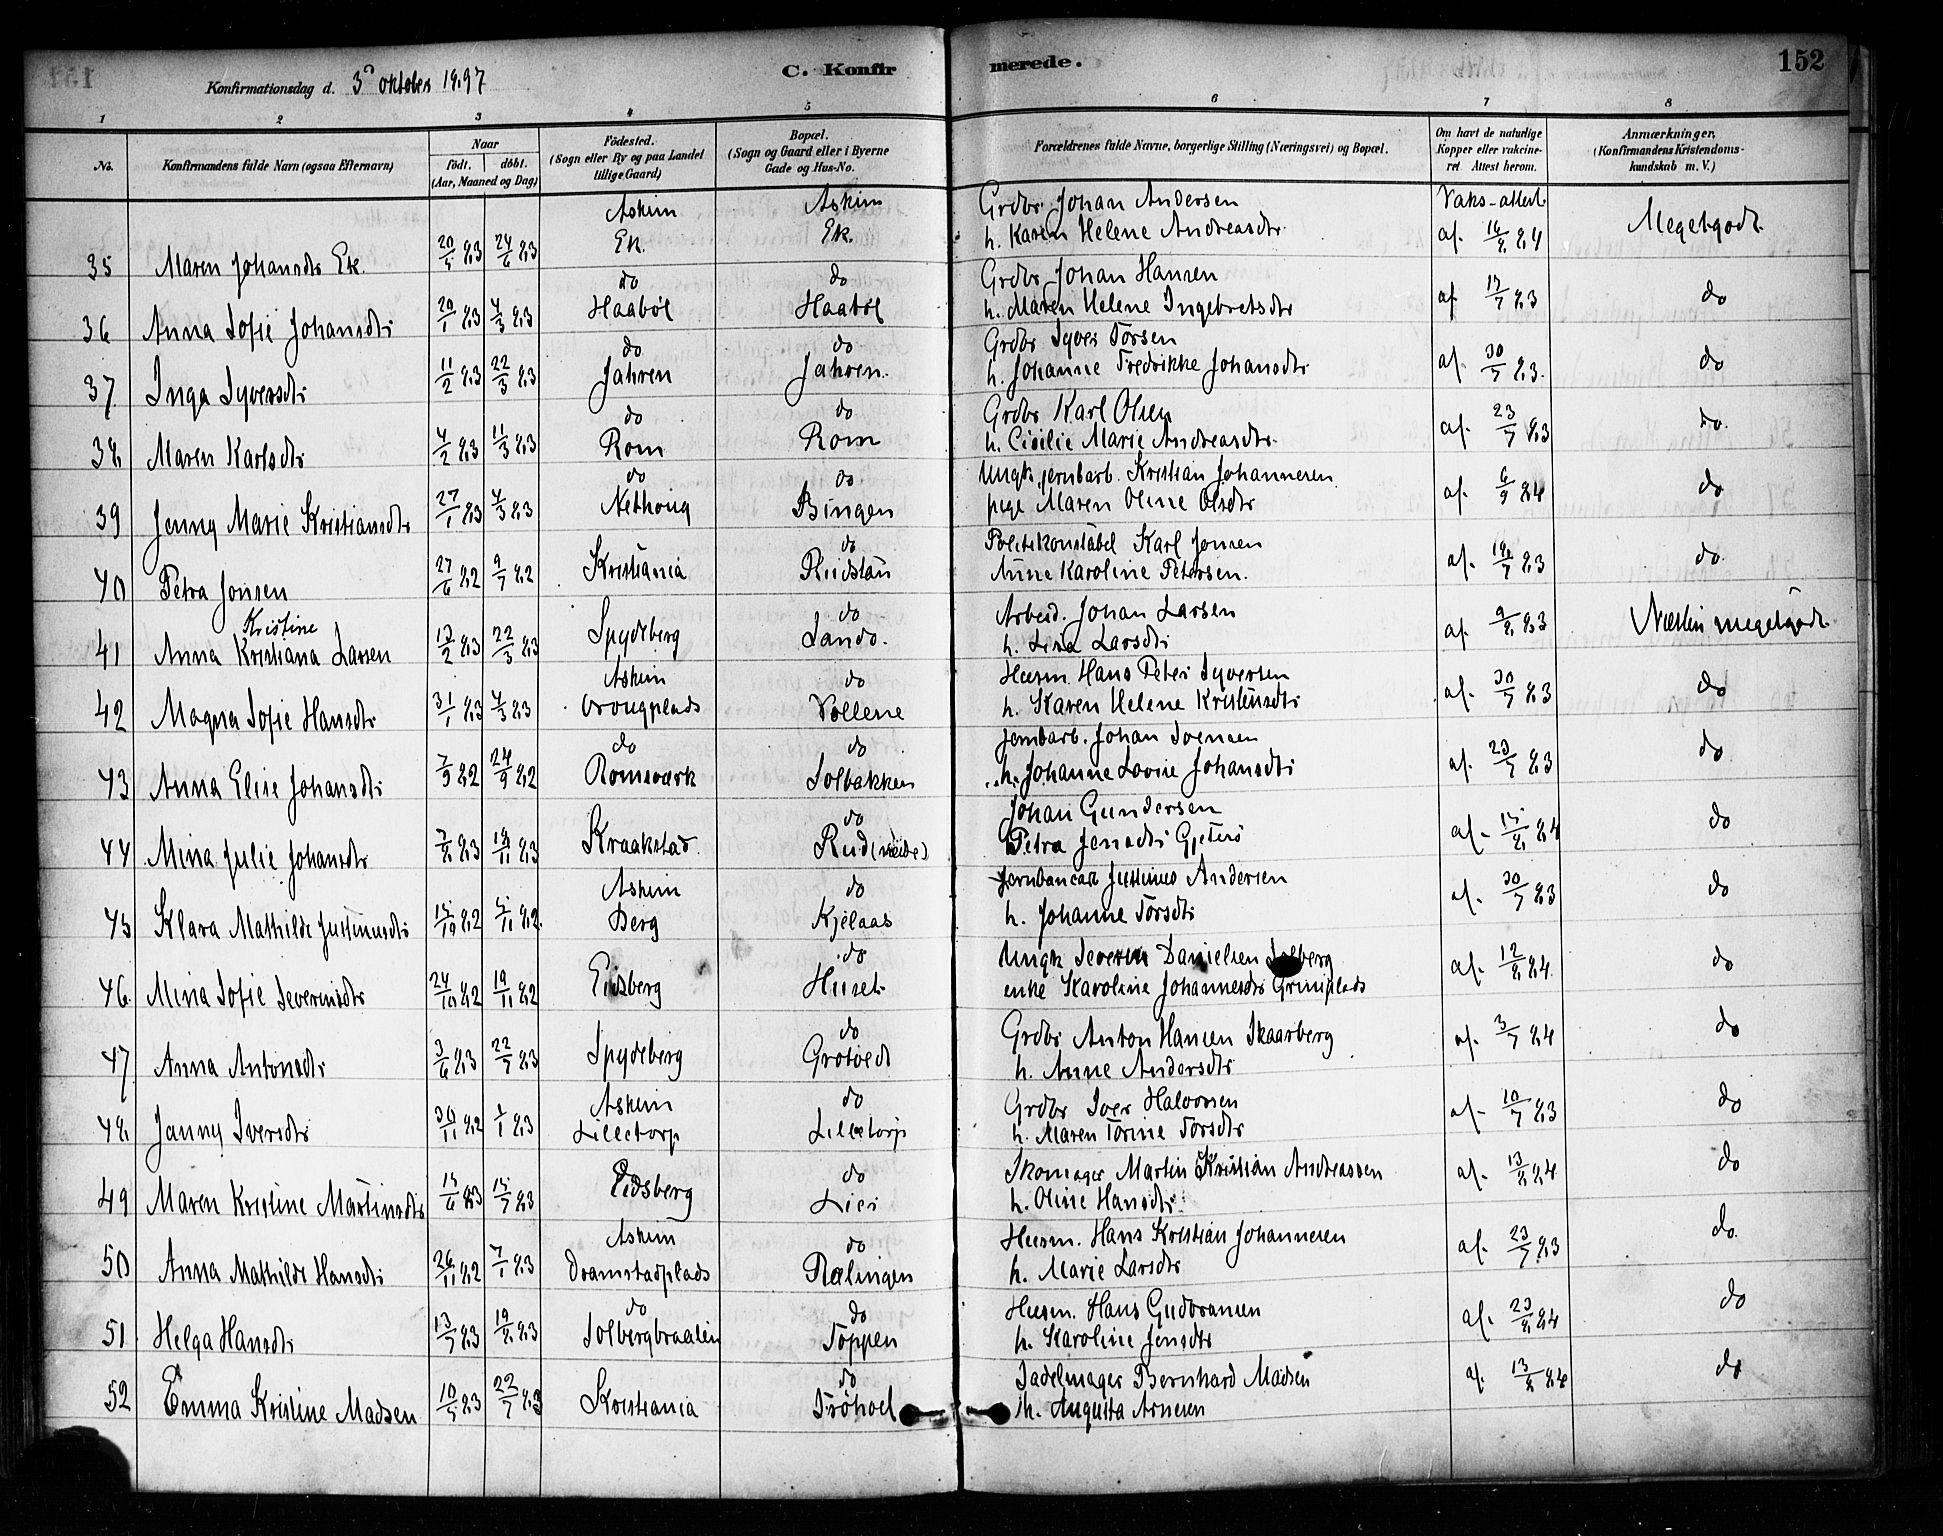 C. Konfirmerede.
152
Konfirmationsdag d. 3d Oktober 1897
1 2 3 4 5 6 7 8
No. Konfirmandens fulde Navn (ogsaa Efternavn) Naar födt. döbt. (Aar, Maaned og Dag) Födested. (Sogn eller By og paa Landet tillige Gaard) Bopæl. (Sogn og Gaard eller i Byerne Gade og Hus-No. Forældrenes fulde Navne, borgerlige Stilling (Næringsvei) og Bopæl. Om havt de naturlige Kopper eller vaccineret Attest herom. Anmærkninger, (Konfirmandens Kristendomskundskab m. V.)
Askim Askim Grdbr. Johan Andersen Vaks-attest
35 Maren Johansdtr Ek. 20/5 83 24/6 83 Ek. Ek. h. Karen Helene Andreasdtr af. 16/8 84 Megetgodt.
do do Grdbr Johan Hansen
36 Anna Sofie Johansdtr 20/1 83 4/3 83 Haaböl Haaböl h. Maren Helene Ingebretsdtr af 17/7 83 do
do do Grdbr Syver Torsen
37 Inga Syversdtr 11/2 83 22/3 83 Jahren Jahren. h. Johanne Fredrikke Johansdtr af. 30/7 83. do
do do Grdbr Karl Olsen
38. Maren Karlsdtr 4/2 83 11/3 83 Rom Rom h. Cicilie Marie Andreasdtr. af. 23/7 83 do.
do do Ungk. jernbarb. Kristian Johannesen
39 Jenny Marie Kristiansdtr 27/1 83 4/3 83 Nethoug Bingen pige Maren Oline Olsdtr af. 6/9 84 do
do Politikonstabel Karl Jonsen
40 Petra Jonsen 27/6 82 9/7 82 Kristiania Rudstau Anne Karoline Petersen. af. 7 83 do.
Kristine do Arbeid. Johan Larsen
41 Anna Kristiana Larsen 2 83 22/3 83 Spydeberg Sando. h. Lina Larsdtr af. 9/8 83 Næsten megetgodt.
Askim do Husm. Hans Peter Syversen
42 Magna Sofie Hansdtr 31/1 83 4/3 83 Vollene h. Karen Helene Kristensdtr af. 30/7 83 do
do do Jernbarb. Johan Svensen
43 Anna Elise Johansdtr 7/9 82 24/9 82 Romsværk Solbakken h. Johanne Lovise Johansdtr af. 23/7 83 do
do Johan Gundersen
44 Mina Julie Johansdtr 8 83 11 83 Kraakstad Rud Petra Jensdtr af. 15/8 84 do
Askim do Justinus Andersen
45 Klara Mathilde Justinusdtr 15/10 82 5/11 82. Berg Kjelaas h. Johanne Torsdtr af. 30/7 83 do
do Ungk Severin Danielsen Solberg
46. Mina Sofie Severinsdtr 24/10 82 19/11 82 Eidsberg Huset enke Karoline Johannesdtr Griniplads af. 12/8 84. do
do Grdbr Anton Hansen Skaarberg
47. Anna Antonsdtr 3/6 83 22/7 83 Spydeberg Grotvedt h. Anne Andersdtr af. 3/7 84 do
Askim do Grdbr Iver Halvorsen
48. Janny Iversdtr 30/11 82 1/1 83 Lilletorp Lilletorp h. Maren Torine Torsdtr af. 10/7 83 do
do Skomager Martin Kristian Andreassen
49 Maren Kristine Martinsdtr 15/6 83 15/7 83 Eidsberg Lier h. Oline Hansdtr. af. 13/8 84 do
Askim do Husm. Hans Kristian Johannesen
50 Anna Mathilde Hansdtr 26/11 82 7/1 83 Dramstadplads Rælingen h. Marie Larsdtr af. 23/7 83 do.
do do Husm. Hans Gudbransen
51. Helga Hansdtr 13/7 83 19/8 83 Solbergbraaten Toppen h. Karoline Jensdtr af. 23/8 84 do
do Sadelmager Bernhard Madsen
52 Emma Kristine Madsen 10/5 83 22/7 83 Kristiania h. Augusta Arnesen af. 13/8 84 do